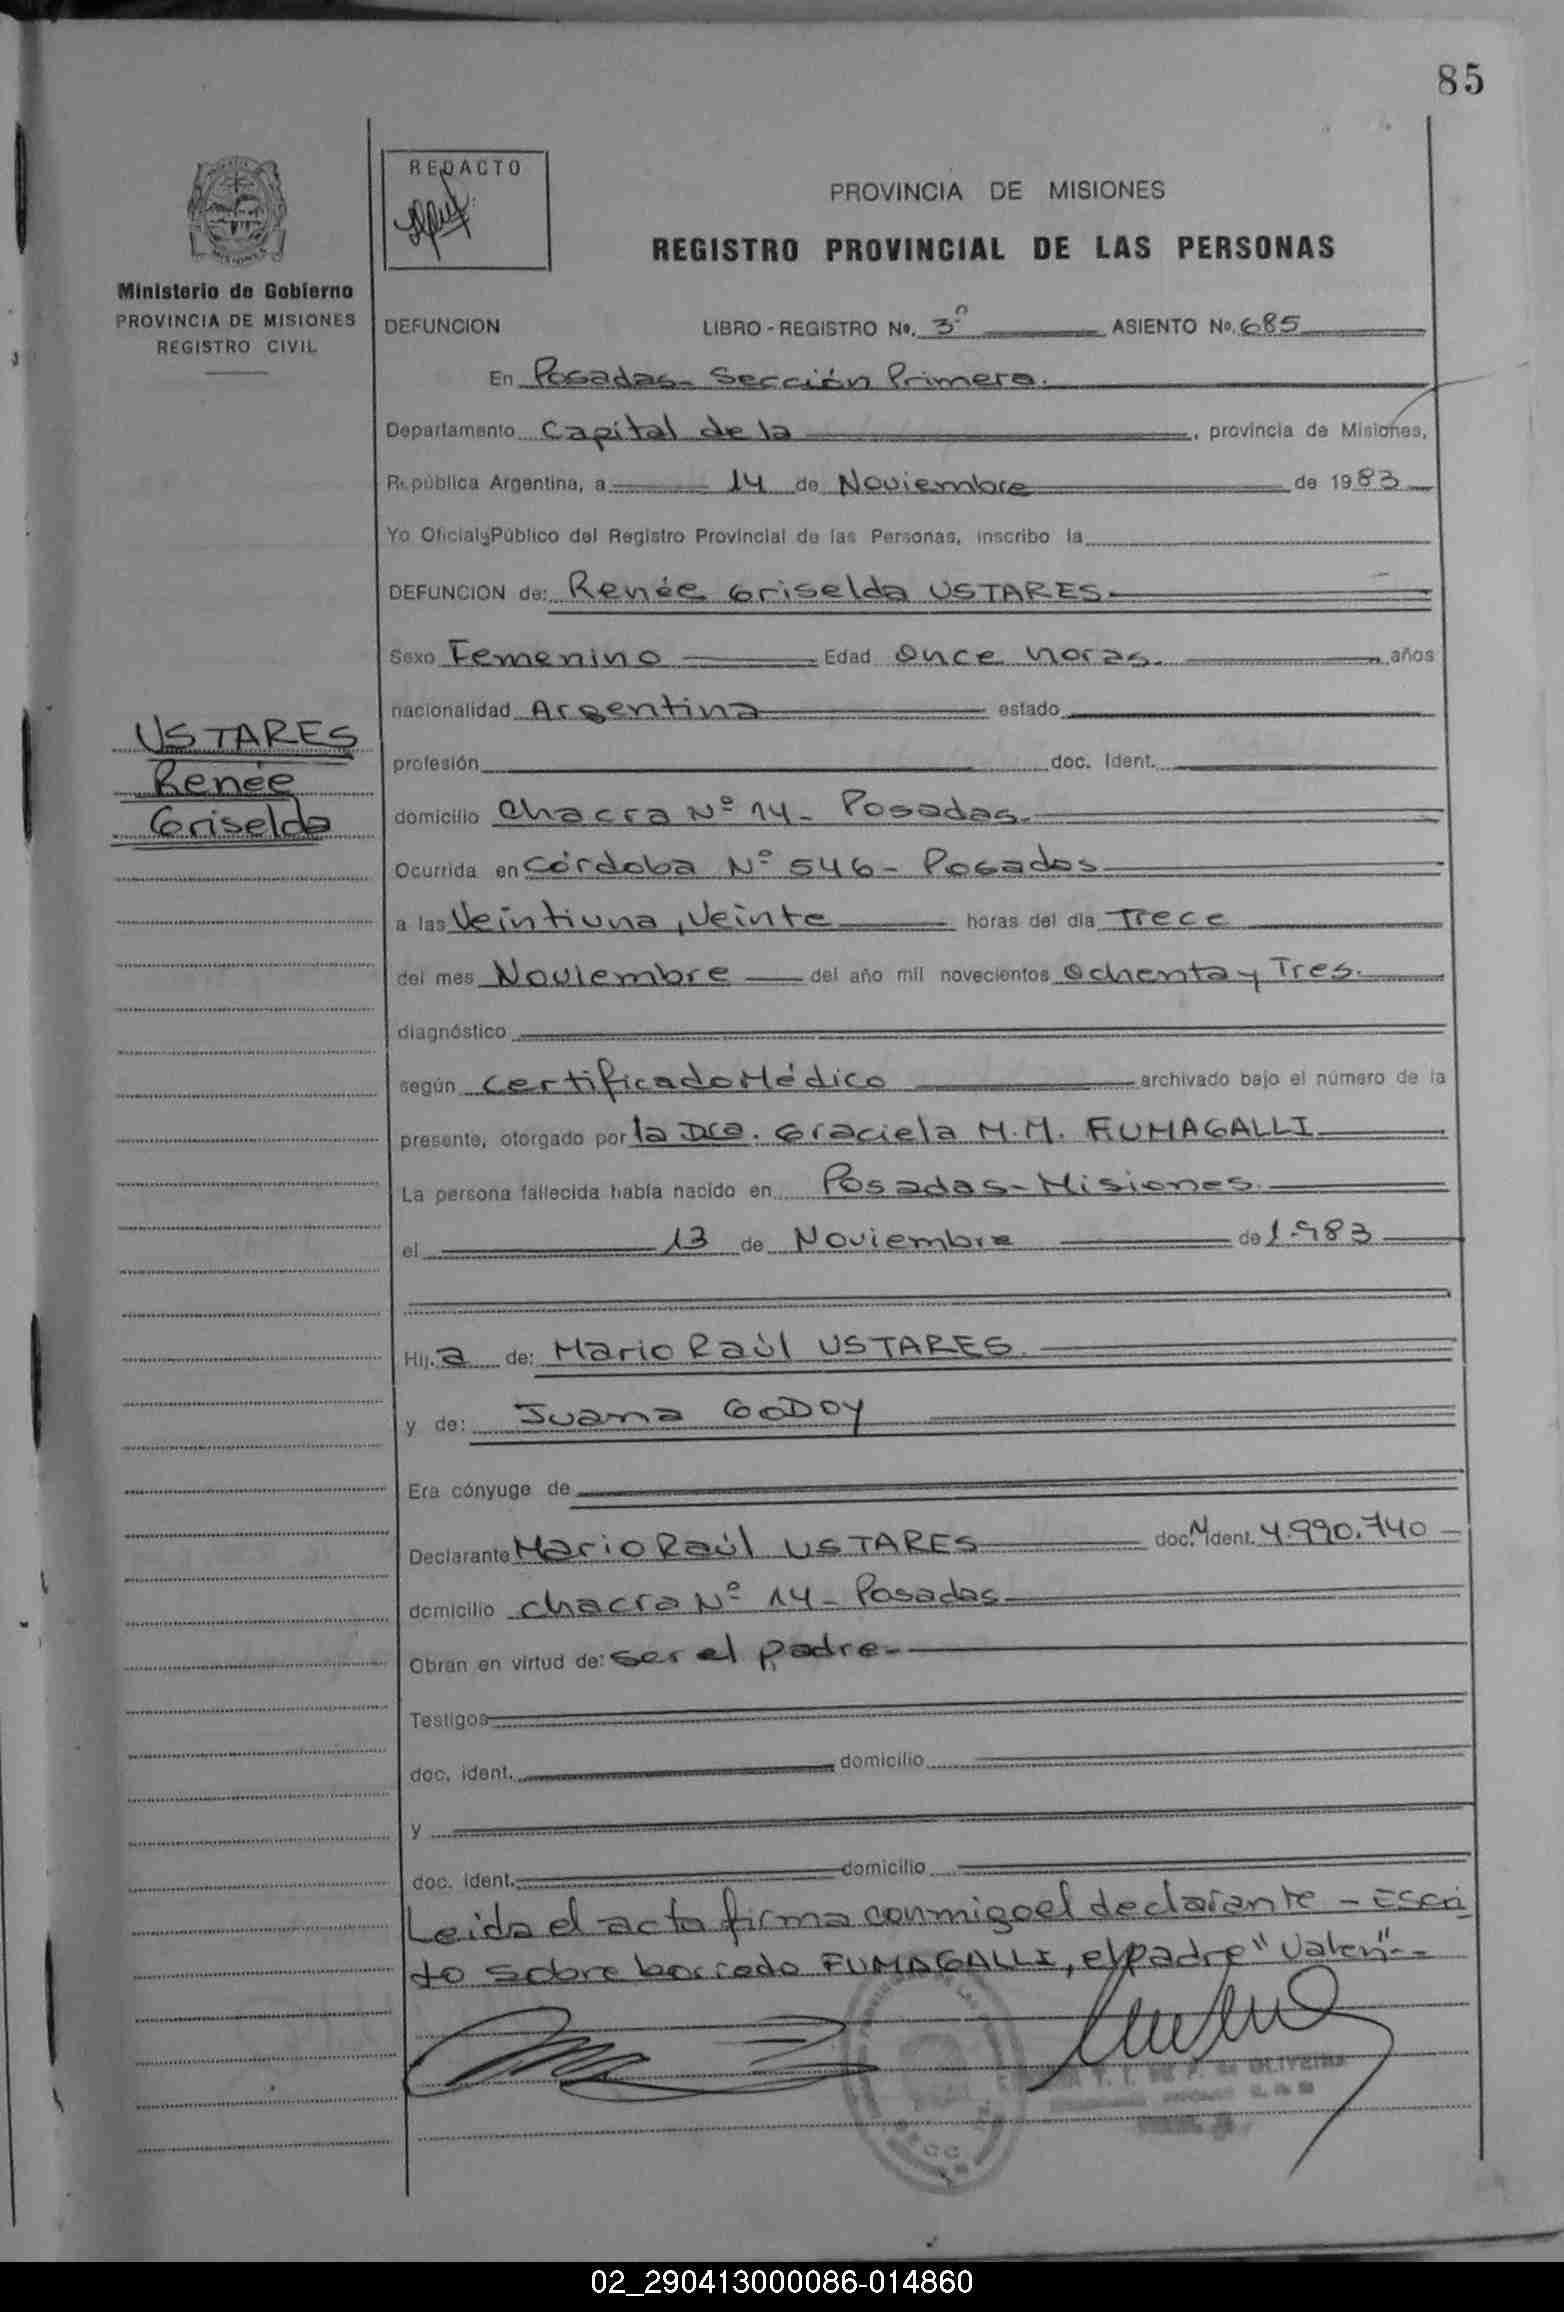 85
REDACTO
PROVINCIA DE MISIONES
REGISTRO PROVINCIAL DE LAS PERSONAS
Ministerio de Gobierno
PROVINCIA DE MISIONES
REGISTRO CIVIL
DEFUNCION LIBRO - REGISTRO No. 3º ASIENTO No. 685
En Posadas - Sección Primera.
Departamento Capital de la , provincia de Misiones,
República Argentina, a 14 de Noviembre de 1983
Yo Oficial Público del Registro Provincial de las Personas, inscribo la
DEFUNCION de: Renée Griselda USTARES.
Sexo Femenino Edad Once horas. años
nacionalidad Argentina estado
USTARES
Renée
Griselda
profesión doc. Ident.
domicilio Chacra Nº 14 - Posadas.
Ocurrida en Córdoba Nº 546 - Posadas
a las Veintiuna, Veinte horas del día Trece
del mes Noviembre del año mil novecientos Ochenta y Tres.
diagnóstico
según Certificado Médico archivado bajo el número de la
presente, otorgado por la Dra. Graciela M.M. FUMAGALLI
La persona fallecida había nacido en Posadas - Misiones.
el 13 de Noviembre de 1.983
Hij.a de: Mario Raúl USTARES.
y de: Juana GODOY
Era cónyuge de
Declarante Mario Raúl USTARES doc. M ident. 4.990.740
domicilio Chacra Nº 14 - Posadas
Obran en virtud de: ser el padre -
Testigos
doc. ident. domicilio
y
doc. ident. domicilio
Leida el acta firma conmigo el declarante - Escri
to sobre borrado FUMAGALLI, el padre "Valen" - -
DE OLIVEIRA
02_290413000086-014860